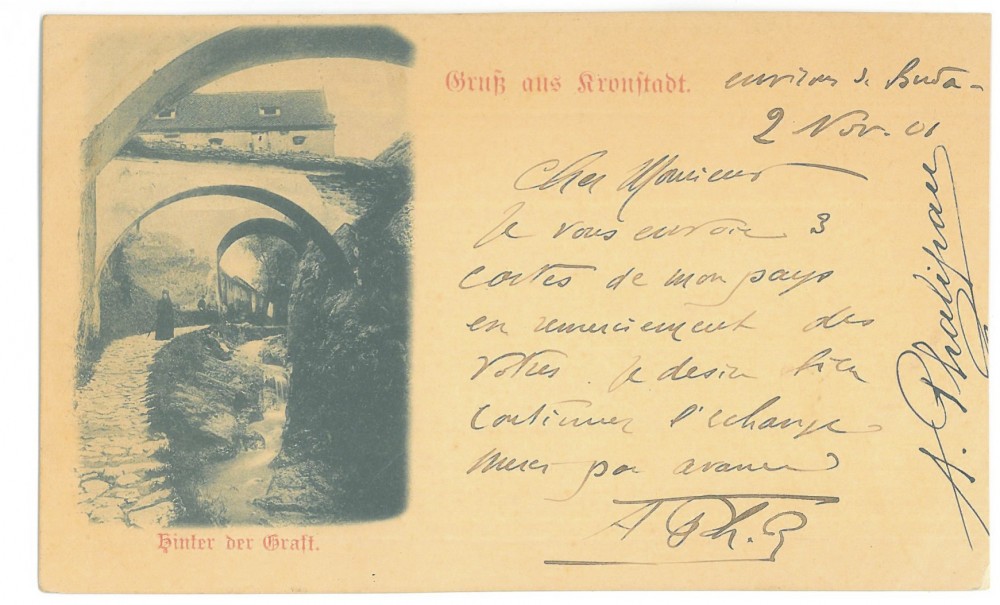 Gruß aus Kronstadt.
environs de Buda-
2 Nov. 01
Cher Monsieur
Je vous envoie 3
cartes de mon pays
en remerciement des
votres. Je desire bien
continuer l'échange
Merci par avance
A Ph.
A. Phalipau
Hinter der Graft.